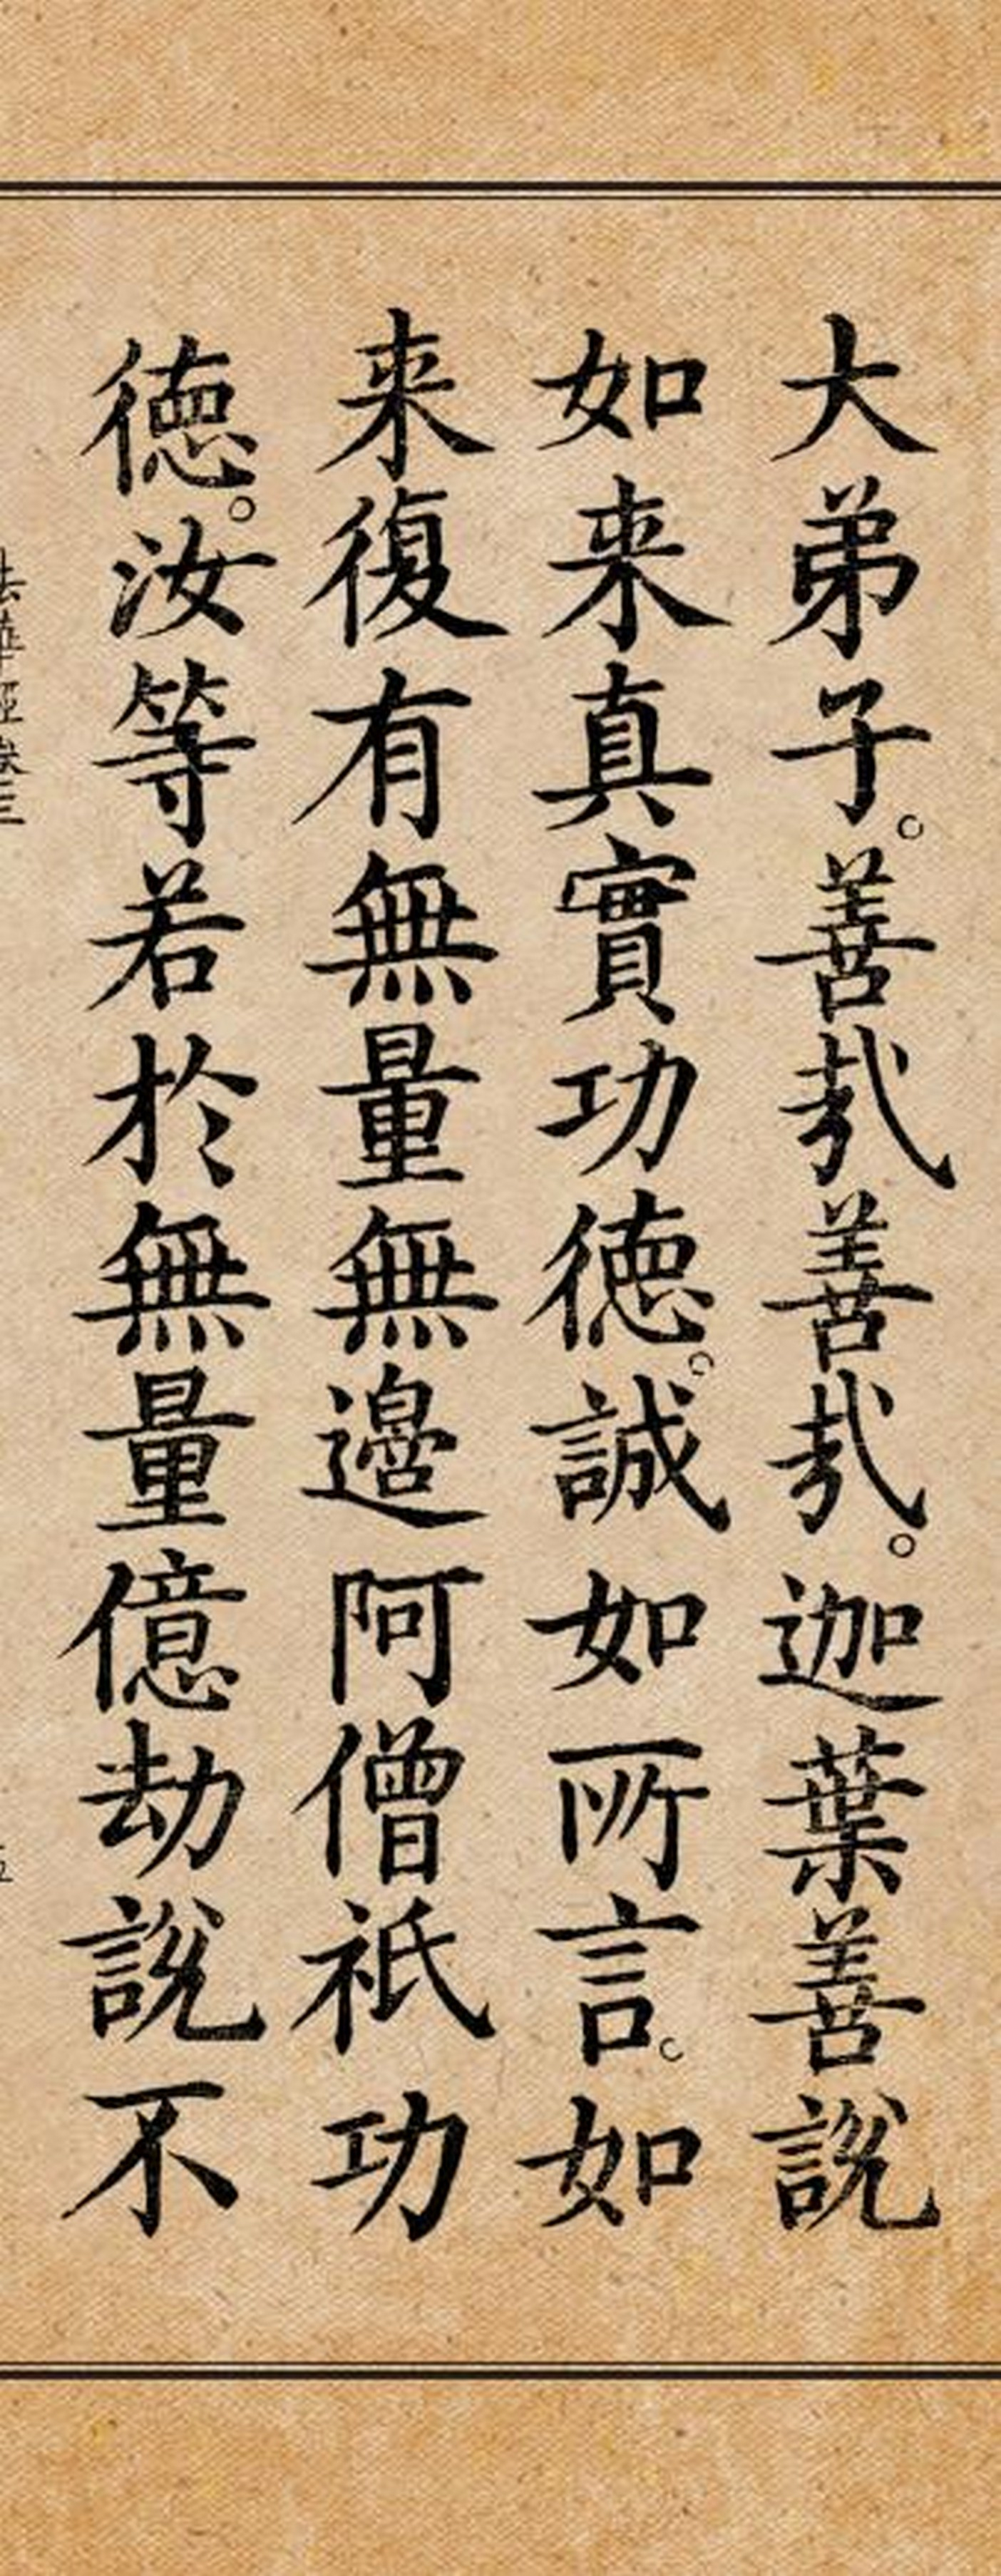 大弟子。善哉善哉。迦葉善說
如来真實功徳。誠如所言。如
来復有無量無邊阿僧祇功
徳。汝等若於無量億劫說不
法華經卷三